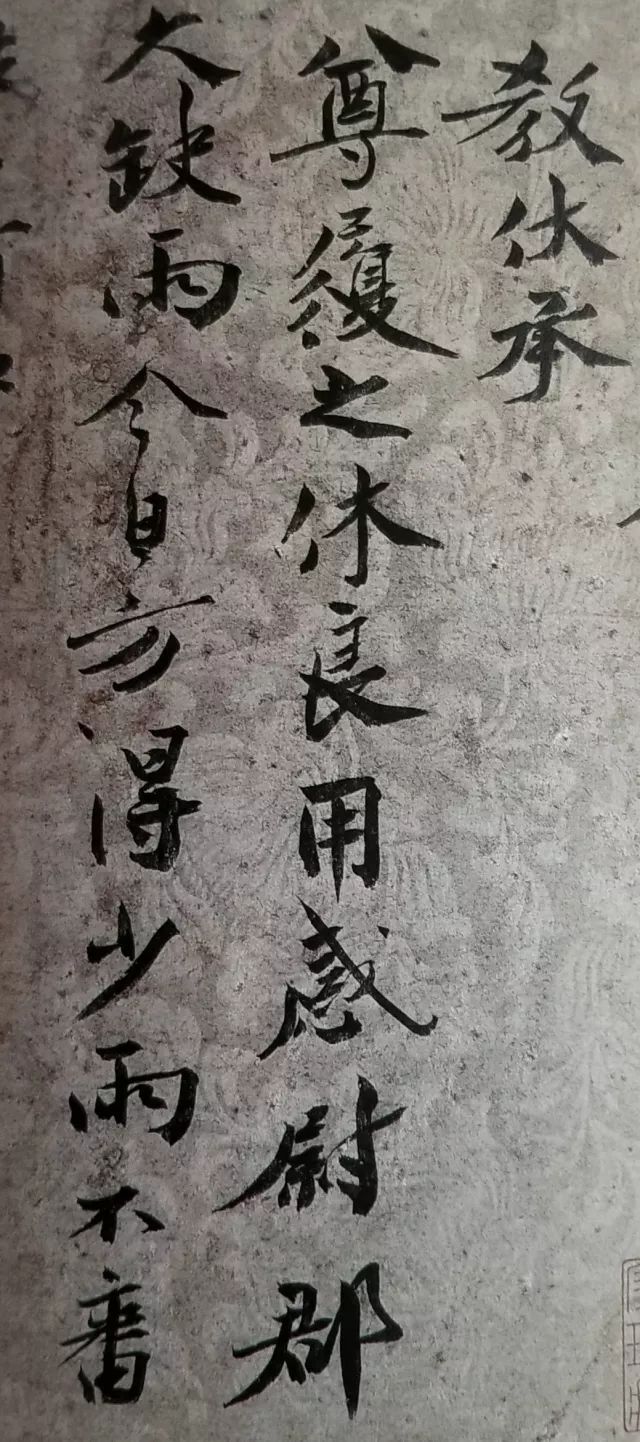 教伏承
尊履之休良用感尉郡
久缺雨今日方得少雨不審